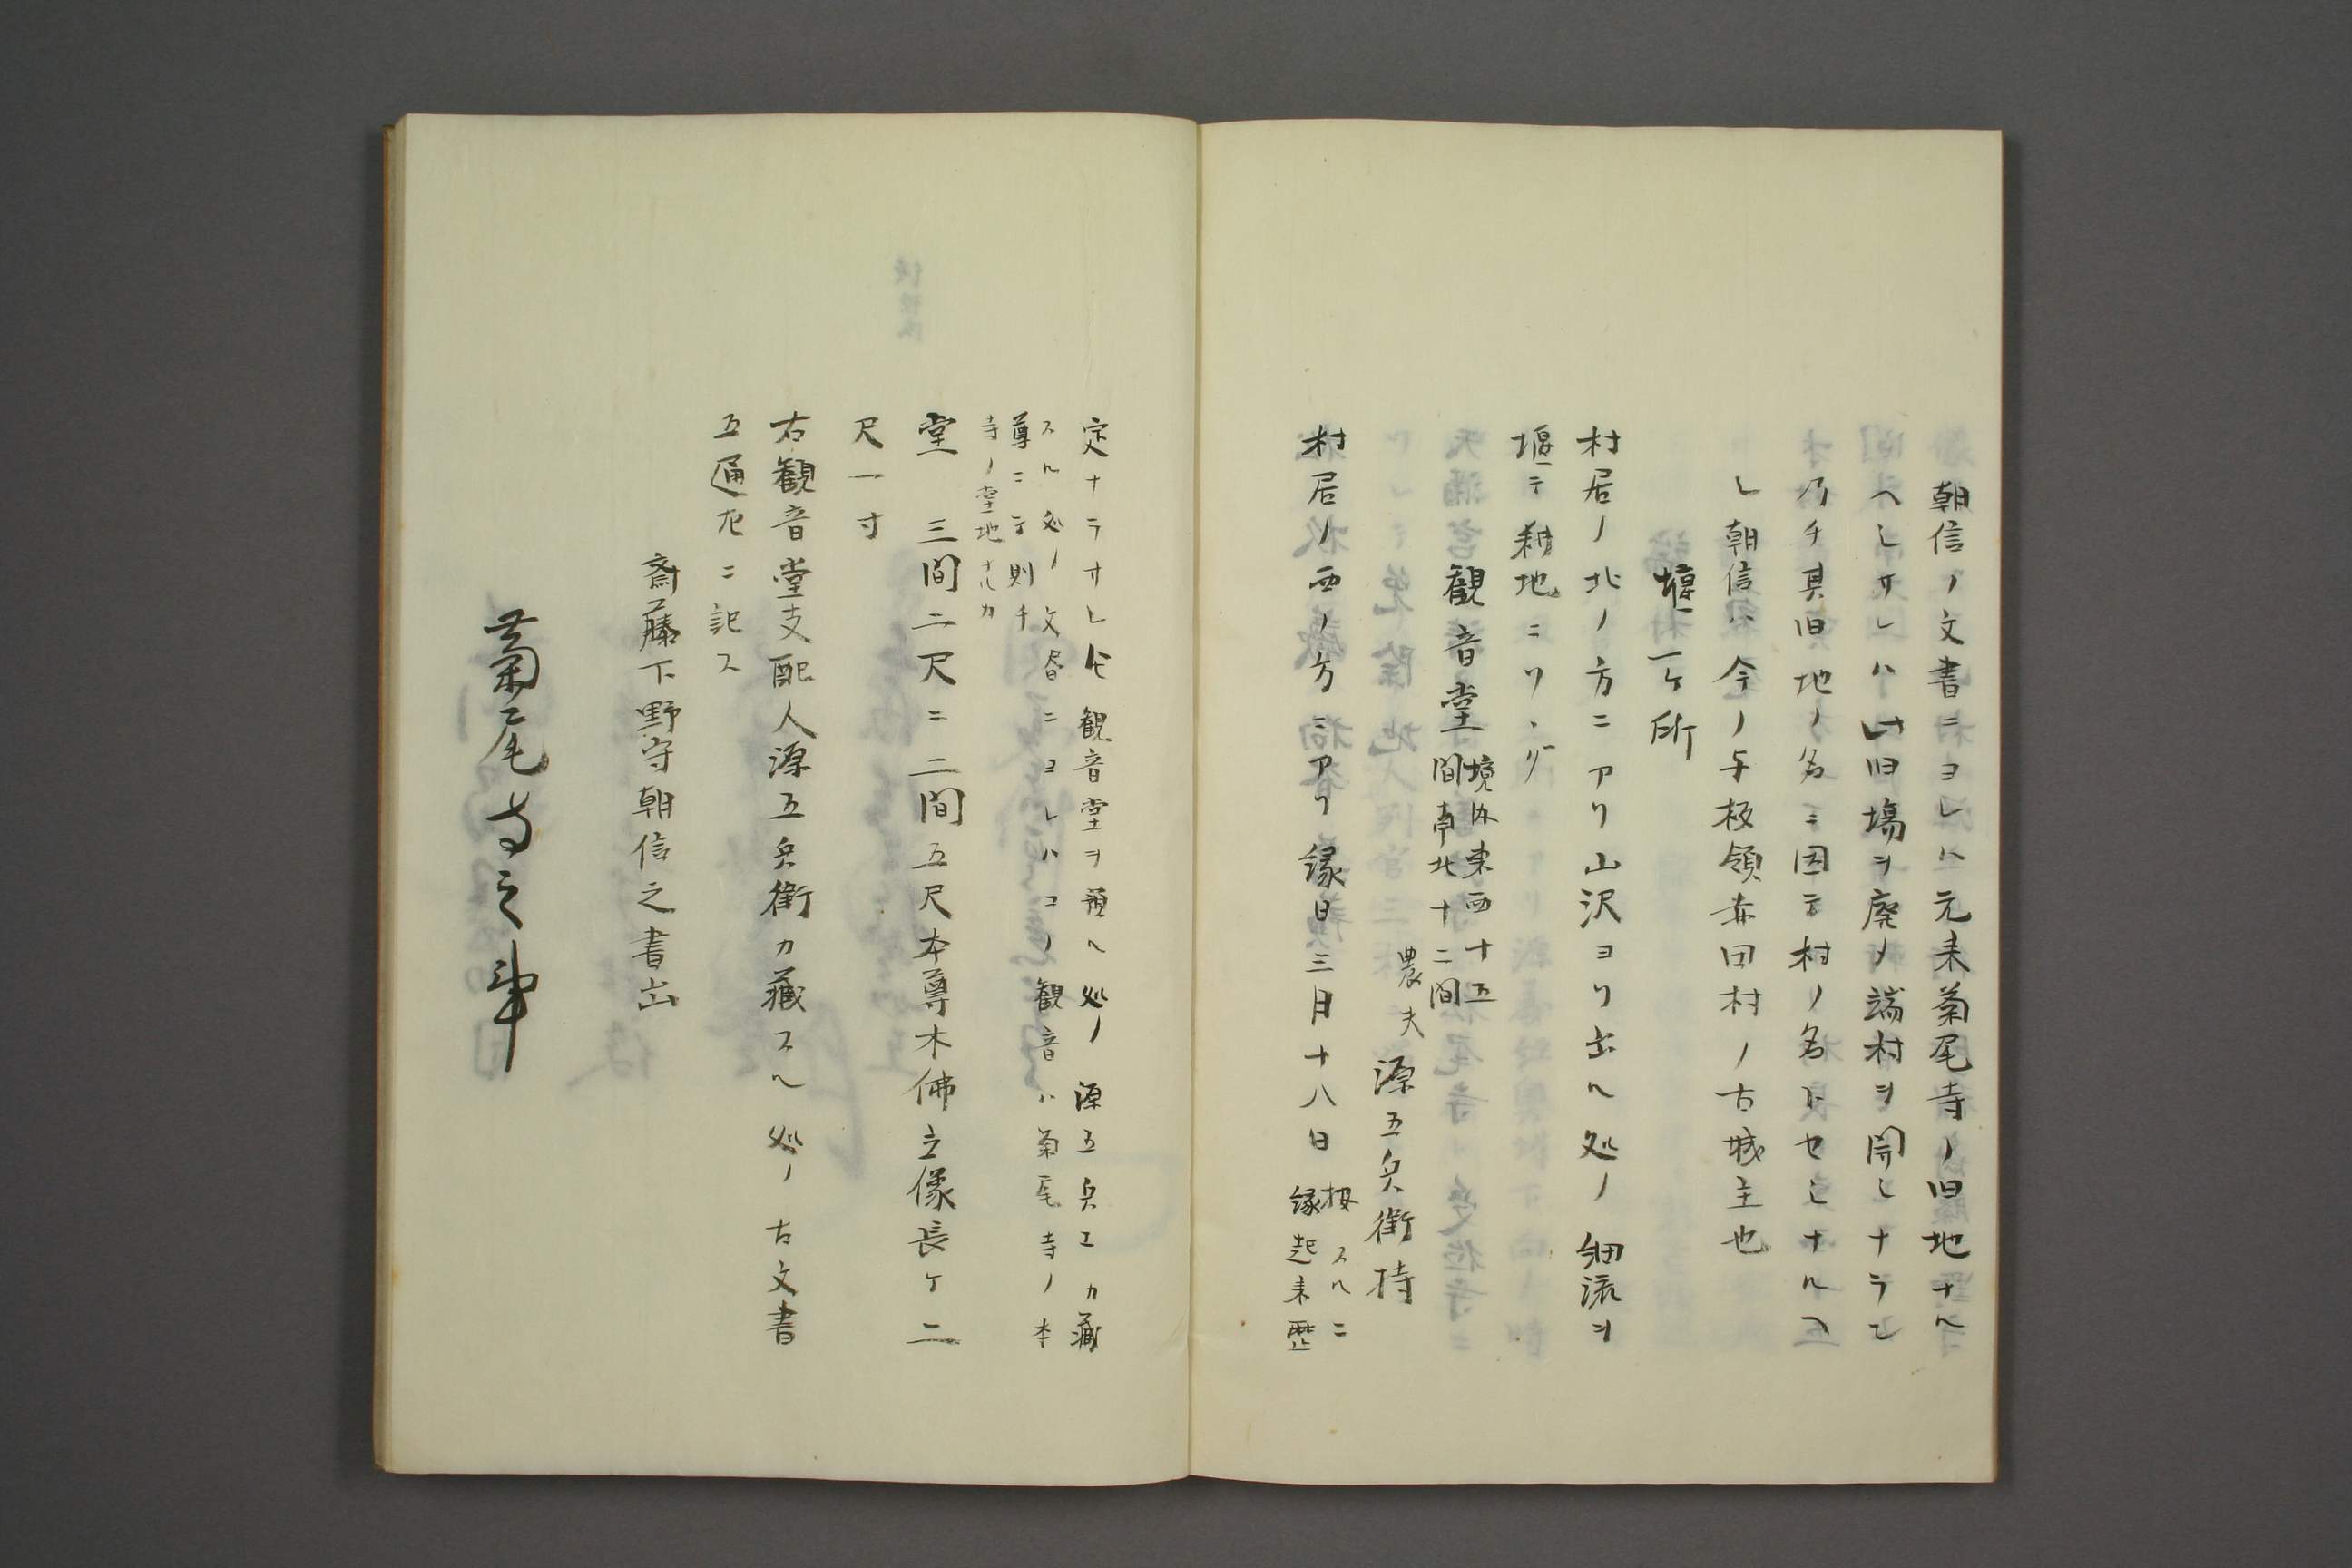 朝信ノ文書ニヨレハ元来菊尾寺ノ旧地ナル
ヘシサレハ此旧場ヲ廃ノ端村ヲ開シナラン
乃チ其旧地ノ名ニ因テ村ノ名トセシナルヘ
シ朝信ハ今ノ与板領赤田村ノ古城主也
堰一ケ所
村居ノ北ノ方ニアリ山沢ヨリ出ル処ノ細流ヲ
堰テ耕地ニソヽグ
観音堂 境内東西十五
間南北十二間
農夫 源五兵衛持
村居ノ西ノ方ニアリ縁日三月十八日 按スルニ
縁起来歴
定ナラサレ𪜈観音堂ヲ預ル処ノ源五兵エカ藏
スル処ノ文書ニヨレハコノ観音ハ菊尾寺ノ本
尊ニテ則チ
寺ノ堂地ナルカ
堂 三間二尺ニ二間五尺本尊木佛立像長ケ二
尺一寸
右観音堂支配人源五兵衛カ藏スル処ノ古文書
五通左ニ記ス
斎藤下野守朝信之書出
菊尾寺之事